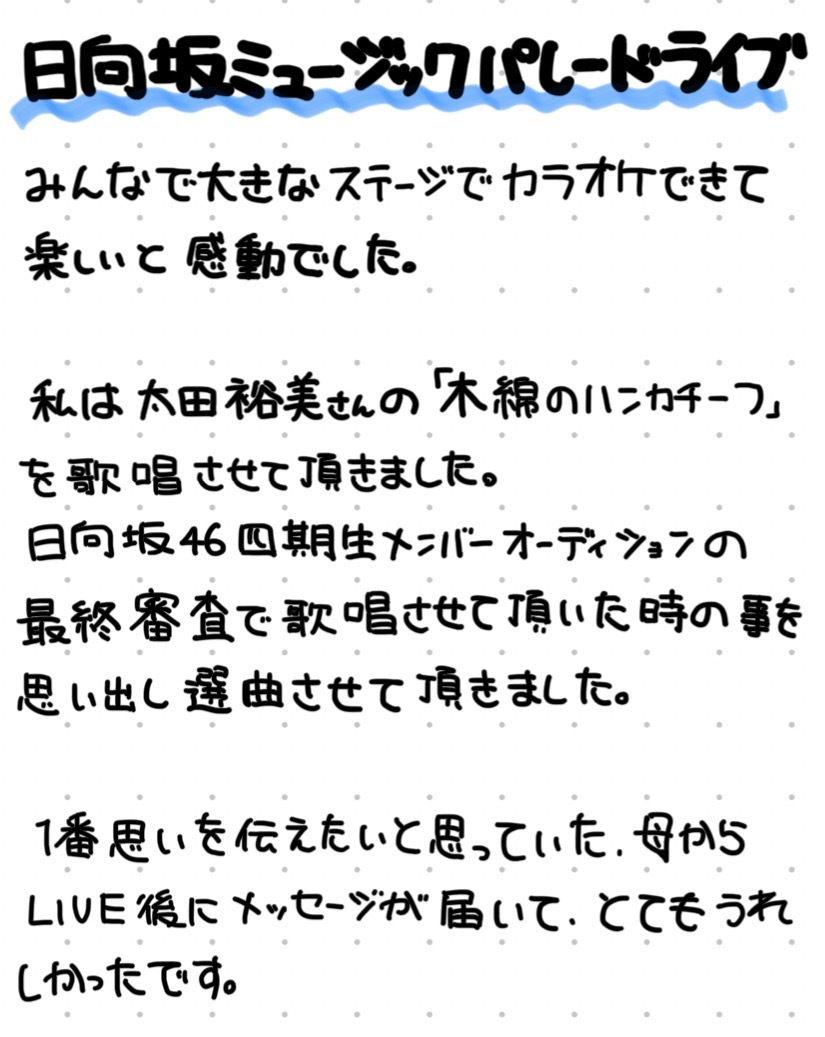 日向坂ミュージックパレードライブ
みんなで大きなステージでカラオケできて
楽しいと感動でした。
私は太田裕美さんの「木綿のハンカチーフ」
を歌唱させて頂きました。
日向坂46四期生メンバーオーディションの
最終審査で歌唱させて頂いた時の事を
思い出し選曲させて頂きました。
1番思いを伝えたいと思っていた、母から
LIVE後にメッセージが届いて、とてもうれ
しかったです。